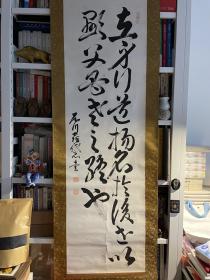 立身行道揚名於後世以
顯父母孝之終也